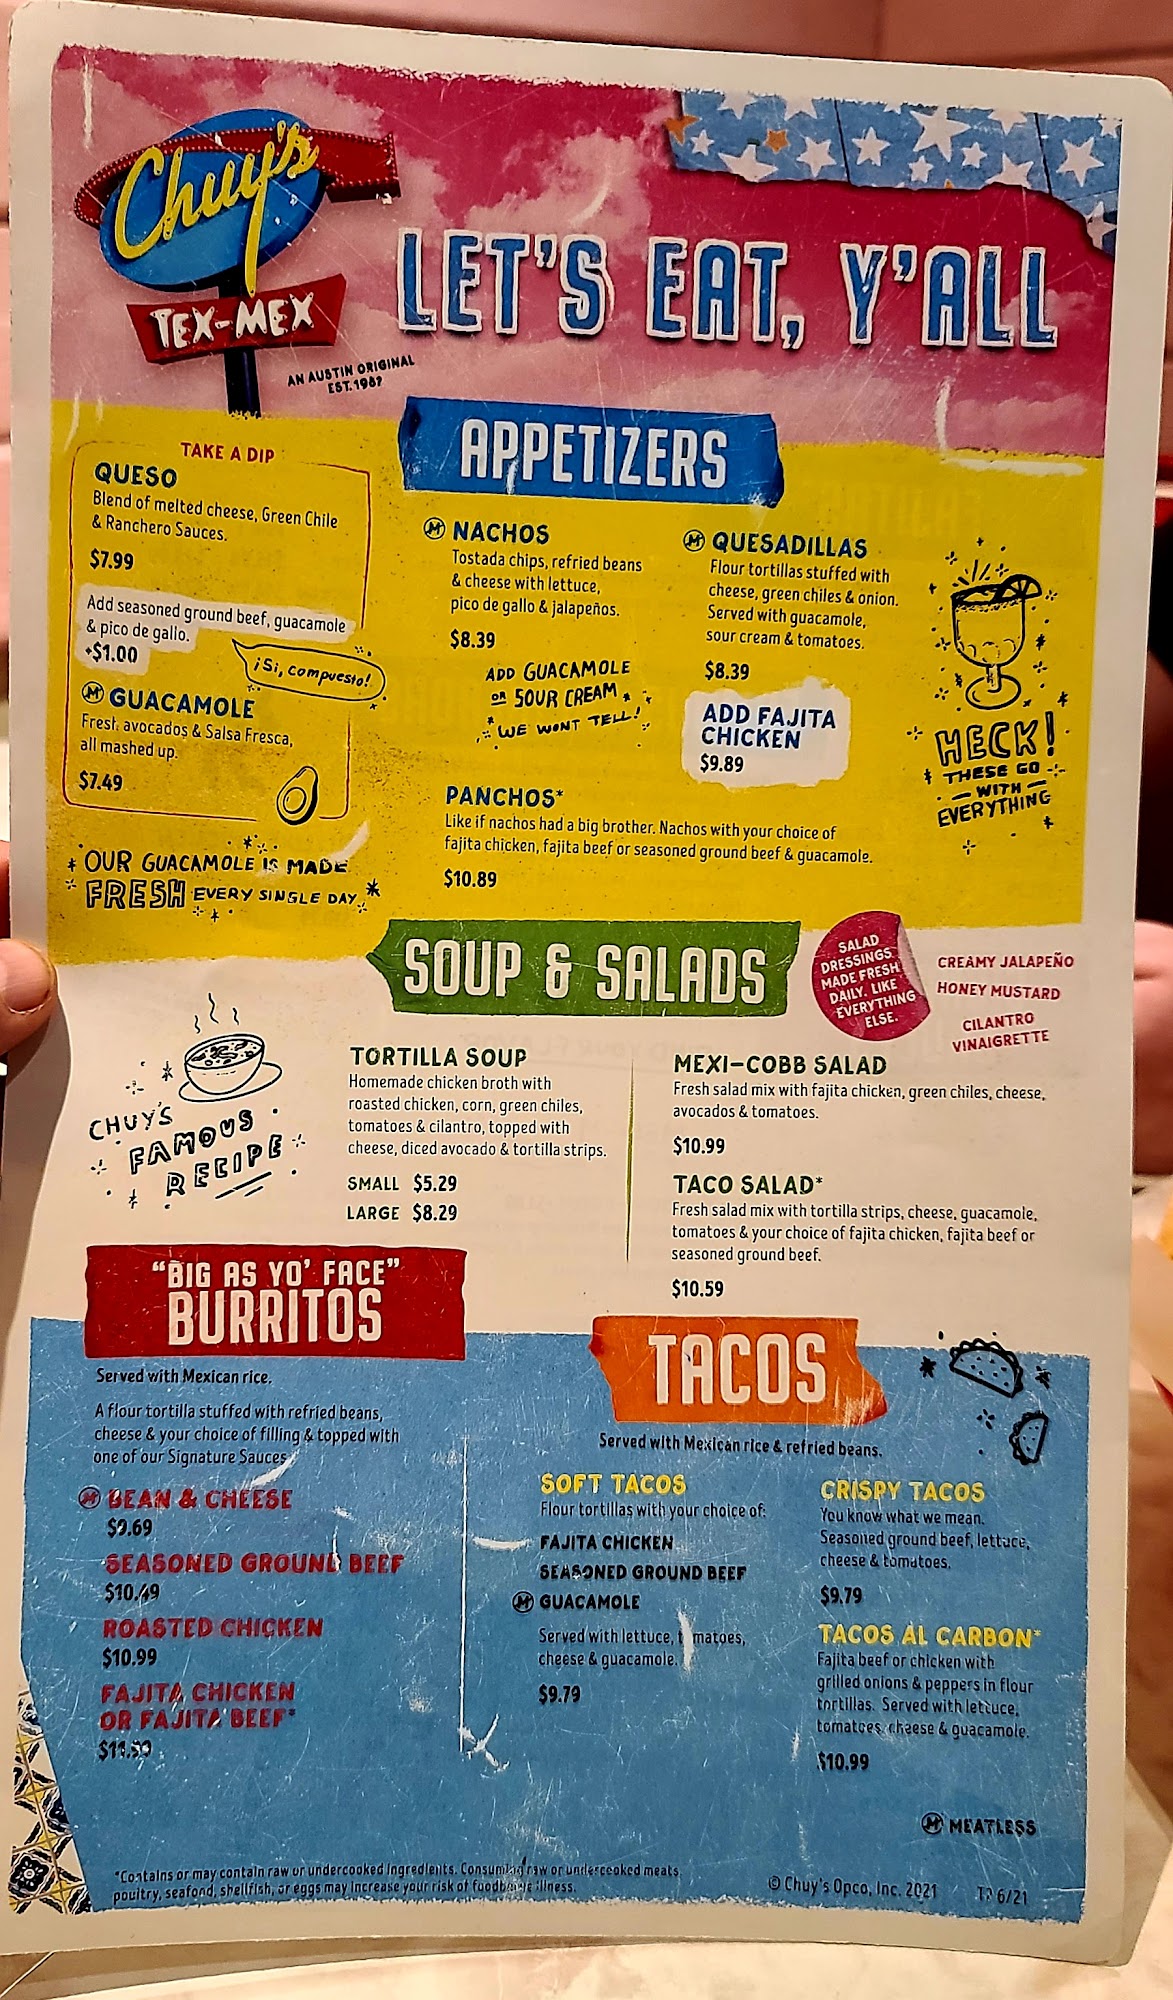 Chuy's
TEX-MEX
AN AUSTIN ORIGINAL
EST. 1982
LET'S EAT, Y'ALL
APPETIZERS
TAKE A DIP
QUESO
Blend of melted cheese, Green Chile
& Ranchero Sauces.
$7.99
Add seasoned ground beef, guacamole
& pico de gallo.
+$1.00
¡Si, compuesto!
M GUACAMOLE
Fresh avocados & Salsa Fresca,
all mashed up.
$7.49
OUR GUACAMOLE IS MADE
FRESH EVERY SINGLE DAY
M NACHOS
Tostada chips, refried beans
& cheese with lettuce,
pico de gallo & jalapeños.
$8.39
ADD GUACAMOLE
OR SOUR CREAM
WE WONT TELL!
M QUESADILLAS
Flour tortillas stuffed with
cheese, green chiles & onion.
Served with guacamole,
sour cream & tomatoes.
$8.39
ADD FAJITA
CHICKEN
$9.89
PANCHOS*
Like if nachos had a big brother. Nachos with your choice of
fajita chicken, fajita beef or seasoned ground beef & guacamole.
$10.89
HECK!
THESE GO
WITH
EVERYTHING
SOUP & SALADS
SALAD
DRESSINGS
MADE FRESH
DAILY. LIKE
EVERYTHING
ELSE.
CREAMY JALAPEÑO
HONEY MUSTARD
CILANTRO
VINAIGRETTE
CHUY'S
FAMOUS
RECIPE
TORTILLA SOUP
Homemade chicken broth with
roasted chicken, corn, green chiles,
tomatoes & cilantro, topped with
cheese, diced avocado & tortilla strips.
SMALL $5.29
LARGE $8.29
MEXI-COBB SALAD
Fresh salad mix with fajita chicken, green chiles, cheese,
avocados & tomatoes.
$10.99
TACO SALAD*
Fresh salad mix with tortilla strips, cheese, guacamole,
tomatoes & your choice of fajita chicken, fajita beef or
seasoned ground beef.
$10.59
"BIG AS YO' FACE"
BURRITOS
Served with Mexican rice.
A flour tortilla stuffed with refried beans,
cheese & your choice of filling & topped with
one of our Signature Sauces
M BEAN & CHEESE
$9.69
SEASONED GROUND BEEF
$10.49
ROASTED CHICKEN
$10.99
FAJITA CHICKEN
OR FAJITA BEEF*
TACOS
Served with Mexican rice & refried beans.
SOFT TACOS
Flour tortillas with your choice of:
FAJITA CHICKEN
SEASONED GROUND BEEF
M GUACAMOLE
Served with lettuce, tomatoes,
cheese & guacamole.
$9.79
CRISPY TACOS
You know what we mean.
Seasoned ground beef, lettuce,
cheese & tomatoes.
$9.79
TACOS AL CARBON*
Fajita beef or chicken with
grilled onions & peppers in flour
tortillas. Served with lettuce,
tomatoes, cheese & guacamole.
$10.99
M MEATLESS
*Contains or may contain raw or undercooked ingredients. Consuming raw or undercooked meats,
poultry, seafood, shellfish, or eggs may increase your risk of foodborne illness.
© Chuy's Opco, Inc. 2021
6/21